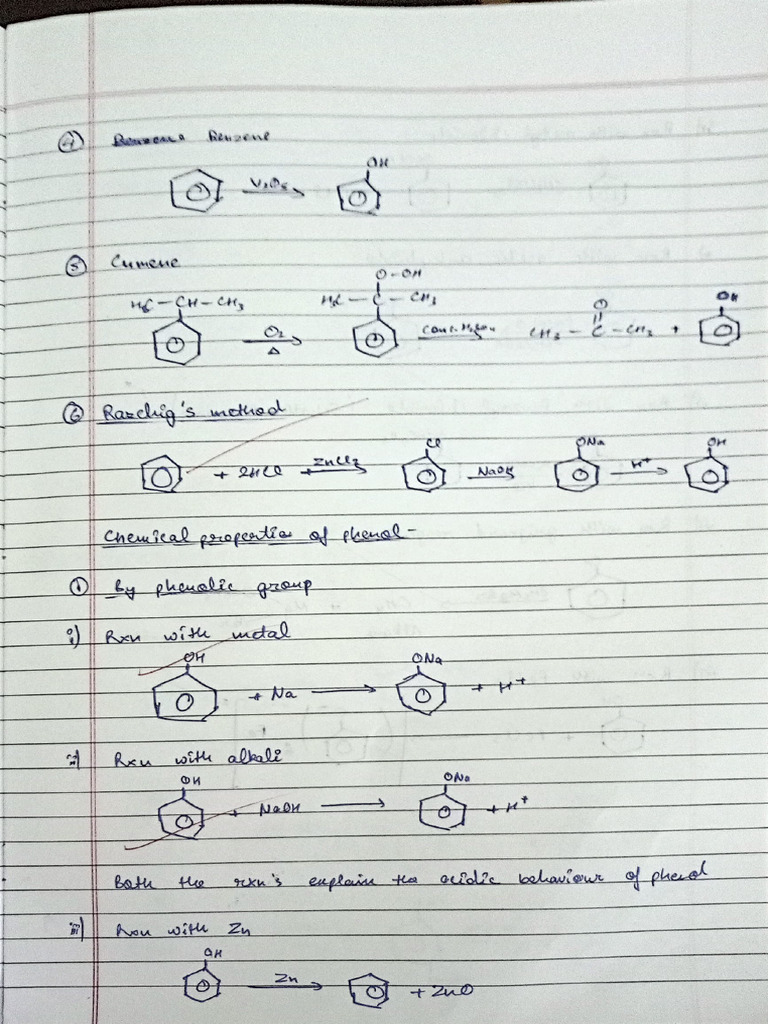 ④ Benzene
V2O5 OH
⑤ Cumene
O-OH
H3C-CH-CH3 H3C-C-CH3 O OH
O2 Δ conc. H2SO4 CH3-C-CH3 +
⑥ Raschig's method
Cl ONa OH
+ 2HCl ZnCl2 NaOH H+
Chemical properties of phenol-
① By phenolic group
i) Rxn with metal
OH ONa
+ Na + H+
ii) Rxn with alkali
OH ONa
+ NaOH + H+
Both the rxn's explain the acidic behaviour of phenol
iii) Rxn with Zn
OH
Zn + ZnO